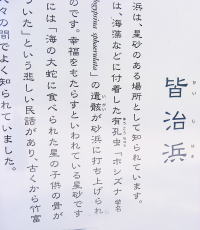 かいじはま
皆治浜
浜は、星砂のある場所として知られています。
は、海藻などに付着した有孔虫「ホシズナ 学名
sphaerulata」の遺骸が砂浜に打ち上げられ
のです。幸福をもたらすといわれている星砂です
には「海の大蛇に食べられた星の子供の骨が
ついた」という悲しい民話があり、古くから竹富
人々の間でよく知られていました。